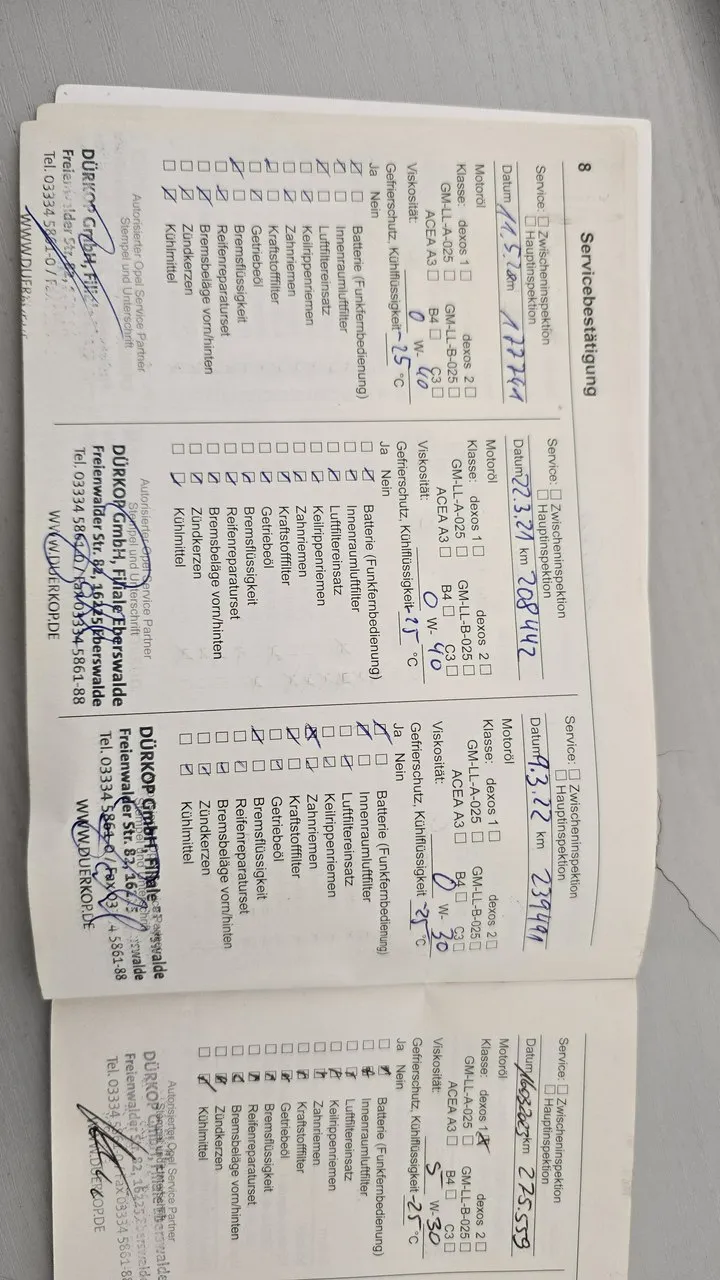 8
Servicebestätigung
Service: ☐ Zwischeninspektion
☐ Hauptinspektion
Datum km 177741
Motoröl
Klasse: dexos 1 ☐ dexos 2 ☐
GM-LL-A-025 ☐ GM-LL-B-025 ☐
ACEA A3 ☐ B4 ☐ C3 ☐
Viskosität: 0 W- 40
Gefrierschutz, Kühlflüssigkeit -25 °C
Ja Nein
☑ ☐ Batterie (Funkfernbedienung)
☑ ☐ Innenraumluftfilter
☑ ☐ Luftfiltereinsatz
☐ ☑ Keilrippenriemen
☐ ☑ Zahnriemen
☑ ☐ Kraftstofffilter
☐ ☑ Getriebeöl
☑ ☐ Bremsflüssigkeit
☐ ☑ Reifenreparaturset
☐ ☑ Bremsbeläge vorn/hinten
☐ ☑ Zündkerzen
☐ ☑ Kühlmittel
Autorisierter Opel Service Partner
Stempel und Unterschrift
DÜRKOP GmbH,
Tel. 03334
WWW.DUERKOP
Service: ☐ Zwischeninspektion
☐ Hauptinspektion
Datum 22.3.21 km 208442
Motoröl
Klasse: dexos 1 ☐ dexos 2 ☐
GM-LL-A-025 ☐ GM-LL-B-025 ☐
ACEA A3 ☐ B4 ☐ C3 ☐
Viskosität: 0 W- 40
Gefrierschutz, Kühlflüssigkeit -25 °C
Ja Nein
☐ ☑ Batterie (Funkfernbedienung)
☐ ☑ Innenraumluftfilter
☐ ☑ Luftfiltereinsatz
☐ ☑ Keilrippenriemen
☐ ☑ Zahnriemen
☐ ☑ Kraftstofffilter
☐ ☑ Getriebeöl
☐ ☑ Bremsflüssigkeit
☐ ☑ Reifenreparaturset
☐ ☑ Bremsbeläge vorn/hinten
☐ ☑ Zündkerzen
☐ ☑ Kühlmittel
Autorisierter Opel Service Partner
Stempel und Unterschrift
DÜRKOP GmbH, Filiale Eberswalde
Freienwalder Str. 82, 16225 Eberswalde
Tel. 03334 5861-0 / Fax 03334 5861-88
WWW.DUERKOP.DE
Service: ☐ Zwischeninspektion
☐ Hauptinspektion
Datum 9.3.22 km 239491
Motoröl
Klasse: dexos 1 ☐ dexos 2 ☐
GM-LL-A-025 ☐ GM-LL-B-025 ☐
ACEA A3 ☐ B4 ☐ C3 ☐
Viskosität: 0 W- 30
Gefrierschutz, Kühlflüssigkeit -25 °C
Ja Nein
☑ ☐ Batterie (Funkfernbedienung)
☑ ☐ Innenraumluftfilter
☐ ☑ Luftfiltereinsatz
☐ ☑ Keilrippenriemen
☑ ☐ Zahnriemen
☑ ☐ Kraftstofffilter
☐ ☑ Getriebeöl
☑ ☐ Bremsflüssigkeit
☐ ☑ Reifenreparaturset
☐ ☑ Bremsbeläge vorn/hinten
☐ ☑ Zündkerzen
☐ ☑ Kühlmittel
DÜRKOP GmbH, Filiale Eberswalde
Freienwalder Str. 82, Eberswalde
Tel. 03334 5861-0 / Fax 03334 5861-88
WWW.DUERKOP.DE
Service: ☐ Zwischeninspektion
☐ Hauptinspektion
Datum km 275.559
Motoröl
Klasse: dexos 1 ☒ dexos 2 ☐
GM-LL-A-025 ☐ GM-LL-B-025 ☐
ACEA A3 ☐ B4 ☐ C3 ☐
Viskosität: 5 W- 30
Gefrierschutz, Kühlflüssigkeit -25 °C
Ja Nein
☐ ☑ Batterie (Funkfernbedienung)
☐ ☑ Innenraumluftfilter
☐ ☑ Luftfiltereinsatz
☐ ☑ Keilrippenriemen
☐ ☑ Zahnriemen
☐ ☑ Kraftstofffilter
☐ ☑ Getriebeöl
☐ ☑ Bremsflüssigkeit
☐ ☑ Reifenreparaturset
☐ ☑ Bremsbeläge vorn/hinten
☐ ☑ Zündkerzen
☐ ☑ Kühlmittel
Autorisierter Opel Service Partner
DÜRKOP
Tel. 03334 Fax 03334 5861-88